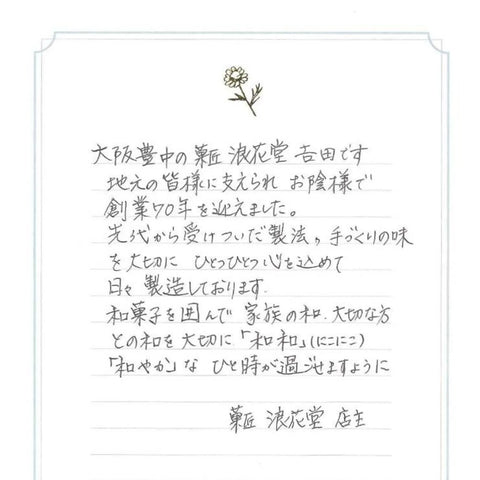 大阪豊中の菓匠 浪花堂 吉田です
地元の皆様に支えられ お陰様で
創業70年を迎えました。
先代から受けついだ製法, 手づくりの味
を大切に ひとつひとつ心を込めて
日々 製造しております.
和菓子を囲んで 家族の和. 大切な方
との和を大切に「和和」(にこにこ)
「和やか」な ひと時が過せますように
菓匠 浪花堂 店主